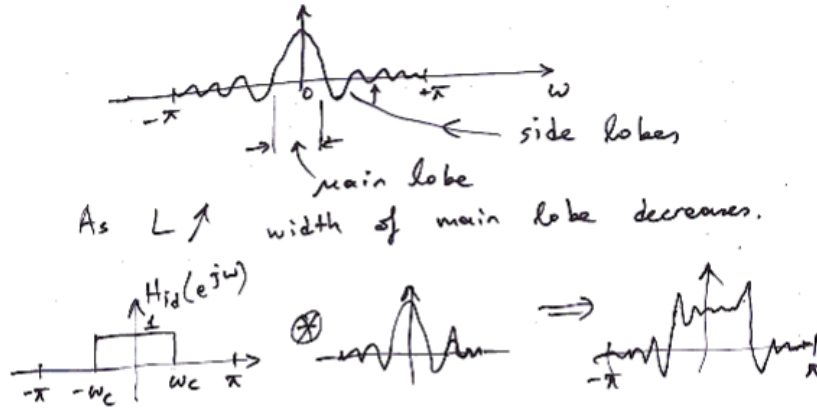 -π 0 +π ω
side lobes
main lobe
As L ↗ width of main lobe decreases.
H_id(e^jω)
1
⊛ ⇒
-π -ω_c ω_c π -π π